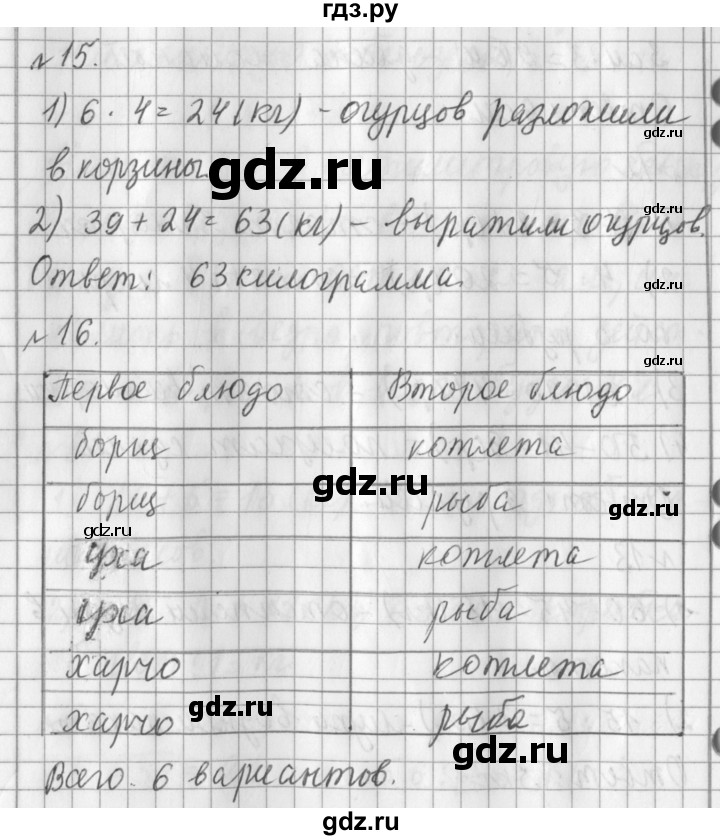 гдз.ру
№15.
1) 6 · 4 = 24 (кг) – огурцов разложили
gdz.ru
в корзины.
gdz.ru
gdz.ru
2) 39 + 24 = 63 (кг) – выратили огурцов.
gdz.ru
Ответ: 63 килограмма.
gdz.ru
№16.
gdz.ru
Первое блюдо Второе блюдо
борщ котлета
gdz.ru
борщ рыба
gdz.ru
gdz.ru
уха котлета
уха рыба
харчо котлета
gdz.ru
харчо рыба
gdz.ru
Всего 6 вариантов.
gdz.ru